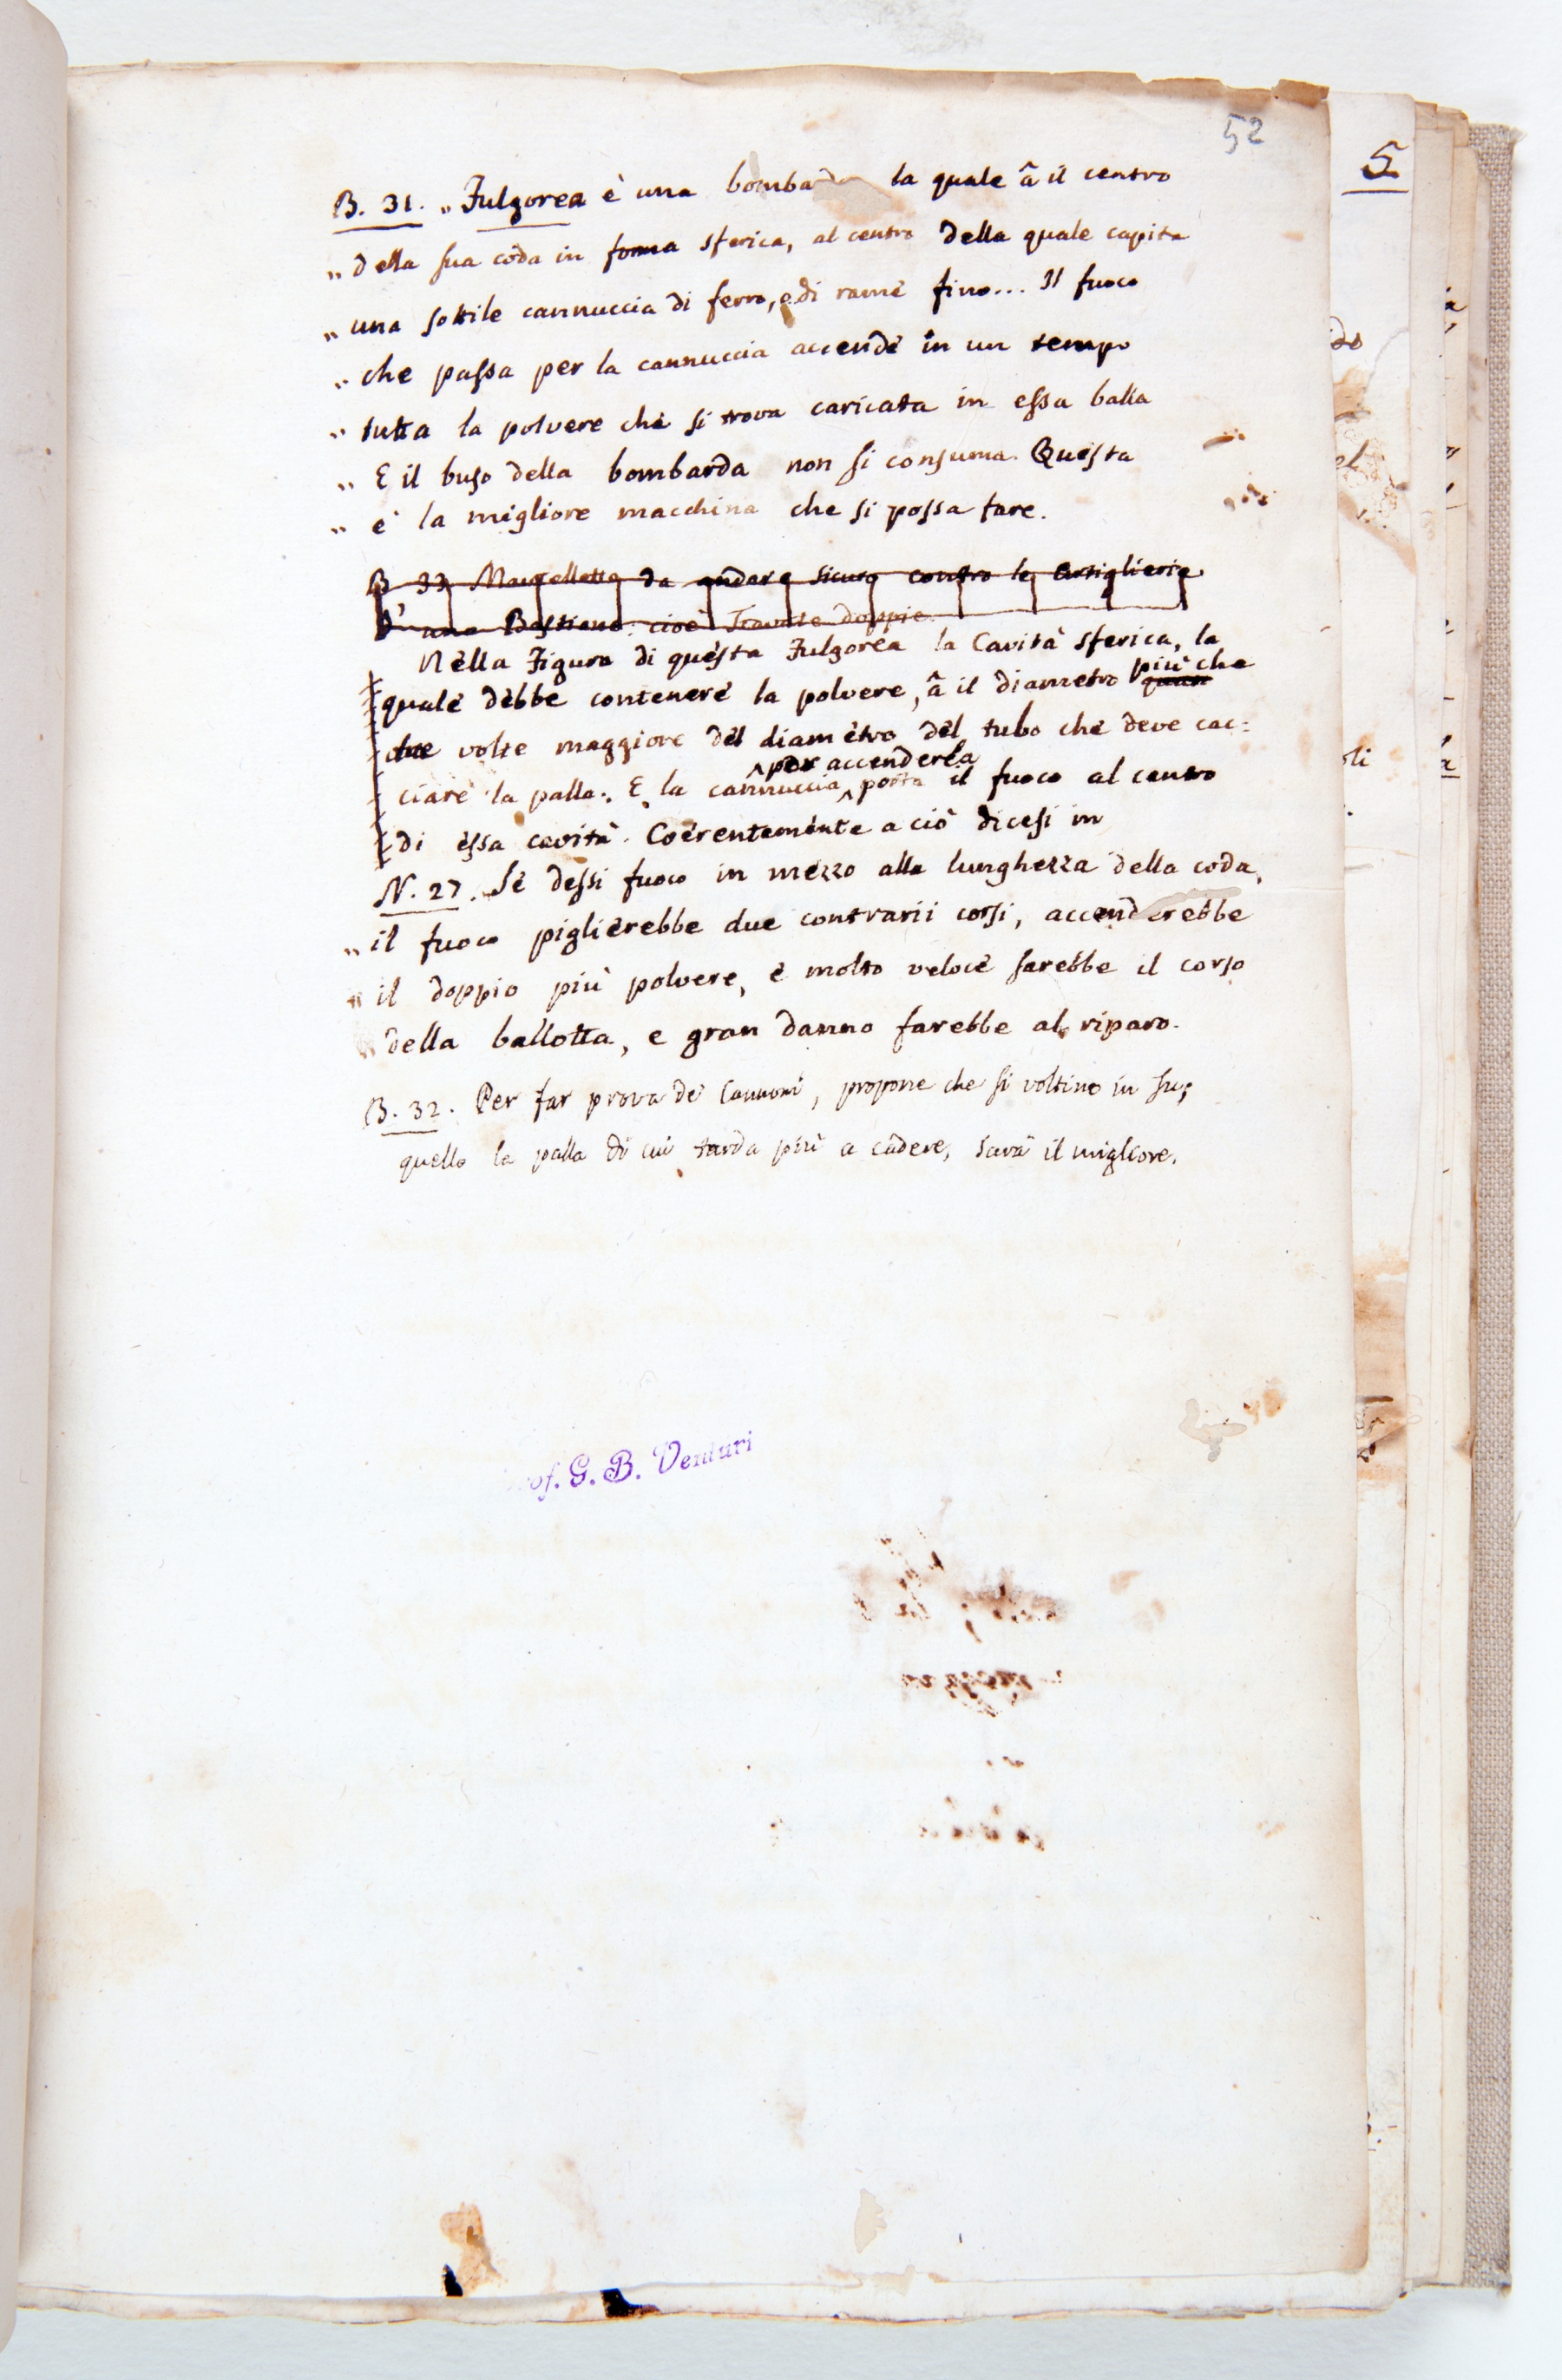 52
5
B. 31. „ Fulgorea è una bombarda la quale â il centro
„ della sua coda in forma sferica, al centro della quale capita
„ una sottile cannuccia di ferro, o di rame fino... Il fuoco
„ che passa per la cannuccia accende in un tempo
„ tutta la polvere che si trova caricata in essa balla
„ E il buso della bombarda non si consuma. Questa
„ è la migliore macchina che si possa fare.
B 33 da andare sicuro contro le Artiglierie
d'una Bastiano: cioè Travate doppie.
Nella Figura di questa Fulgorea la Cavità sferica, la
quale debbe contenere la polvere, â il diametro quasi più che
due volte maggiore del diametro del tubo che deve cac:
ciare la palla. E la cannuccia per accenderla porta il fuoco al centro
di essa cavità. Coerentemente a ciò dicesi in
N. 27. Se dessi fuoco in mezzo alla lunghezza della coda,
„ il fuoco piglierebbe due contrarii corsi, accenderebbe
„ il doppio più polvere, e molto veloce sarebbe il corso
„ della ballotta, e gran danno farebbe al riparo.
B. 32. Per far prova de' Cannoni, propone che si voltino in su;
quello la palla di cui tarda più a cadere, sarà il migliore.
Prof. G. B. Venturi